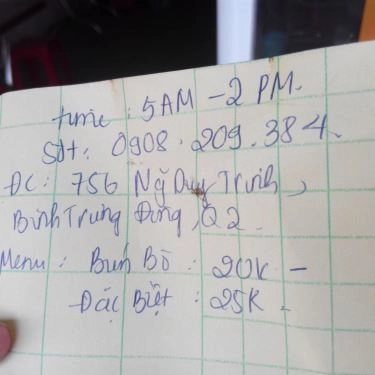 time : 5AM - 2 PM.
Sđt: 0908.209.384.
ĐC: 756 Ng Duy Trinh,
Bình Trưng Đông, Q2.
Menu : Bún Bò : 20K -
Đặc Biệt : 25K.